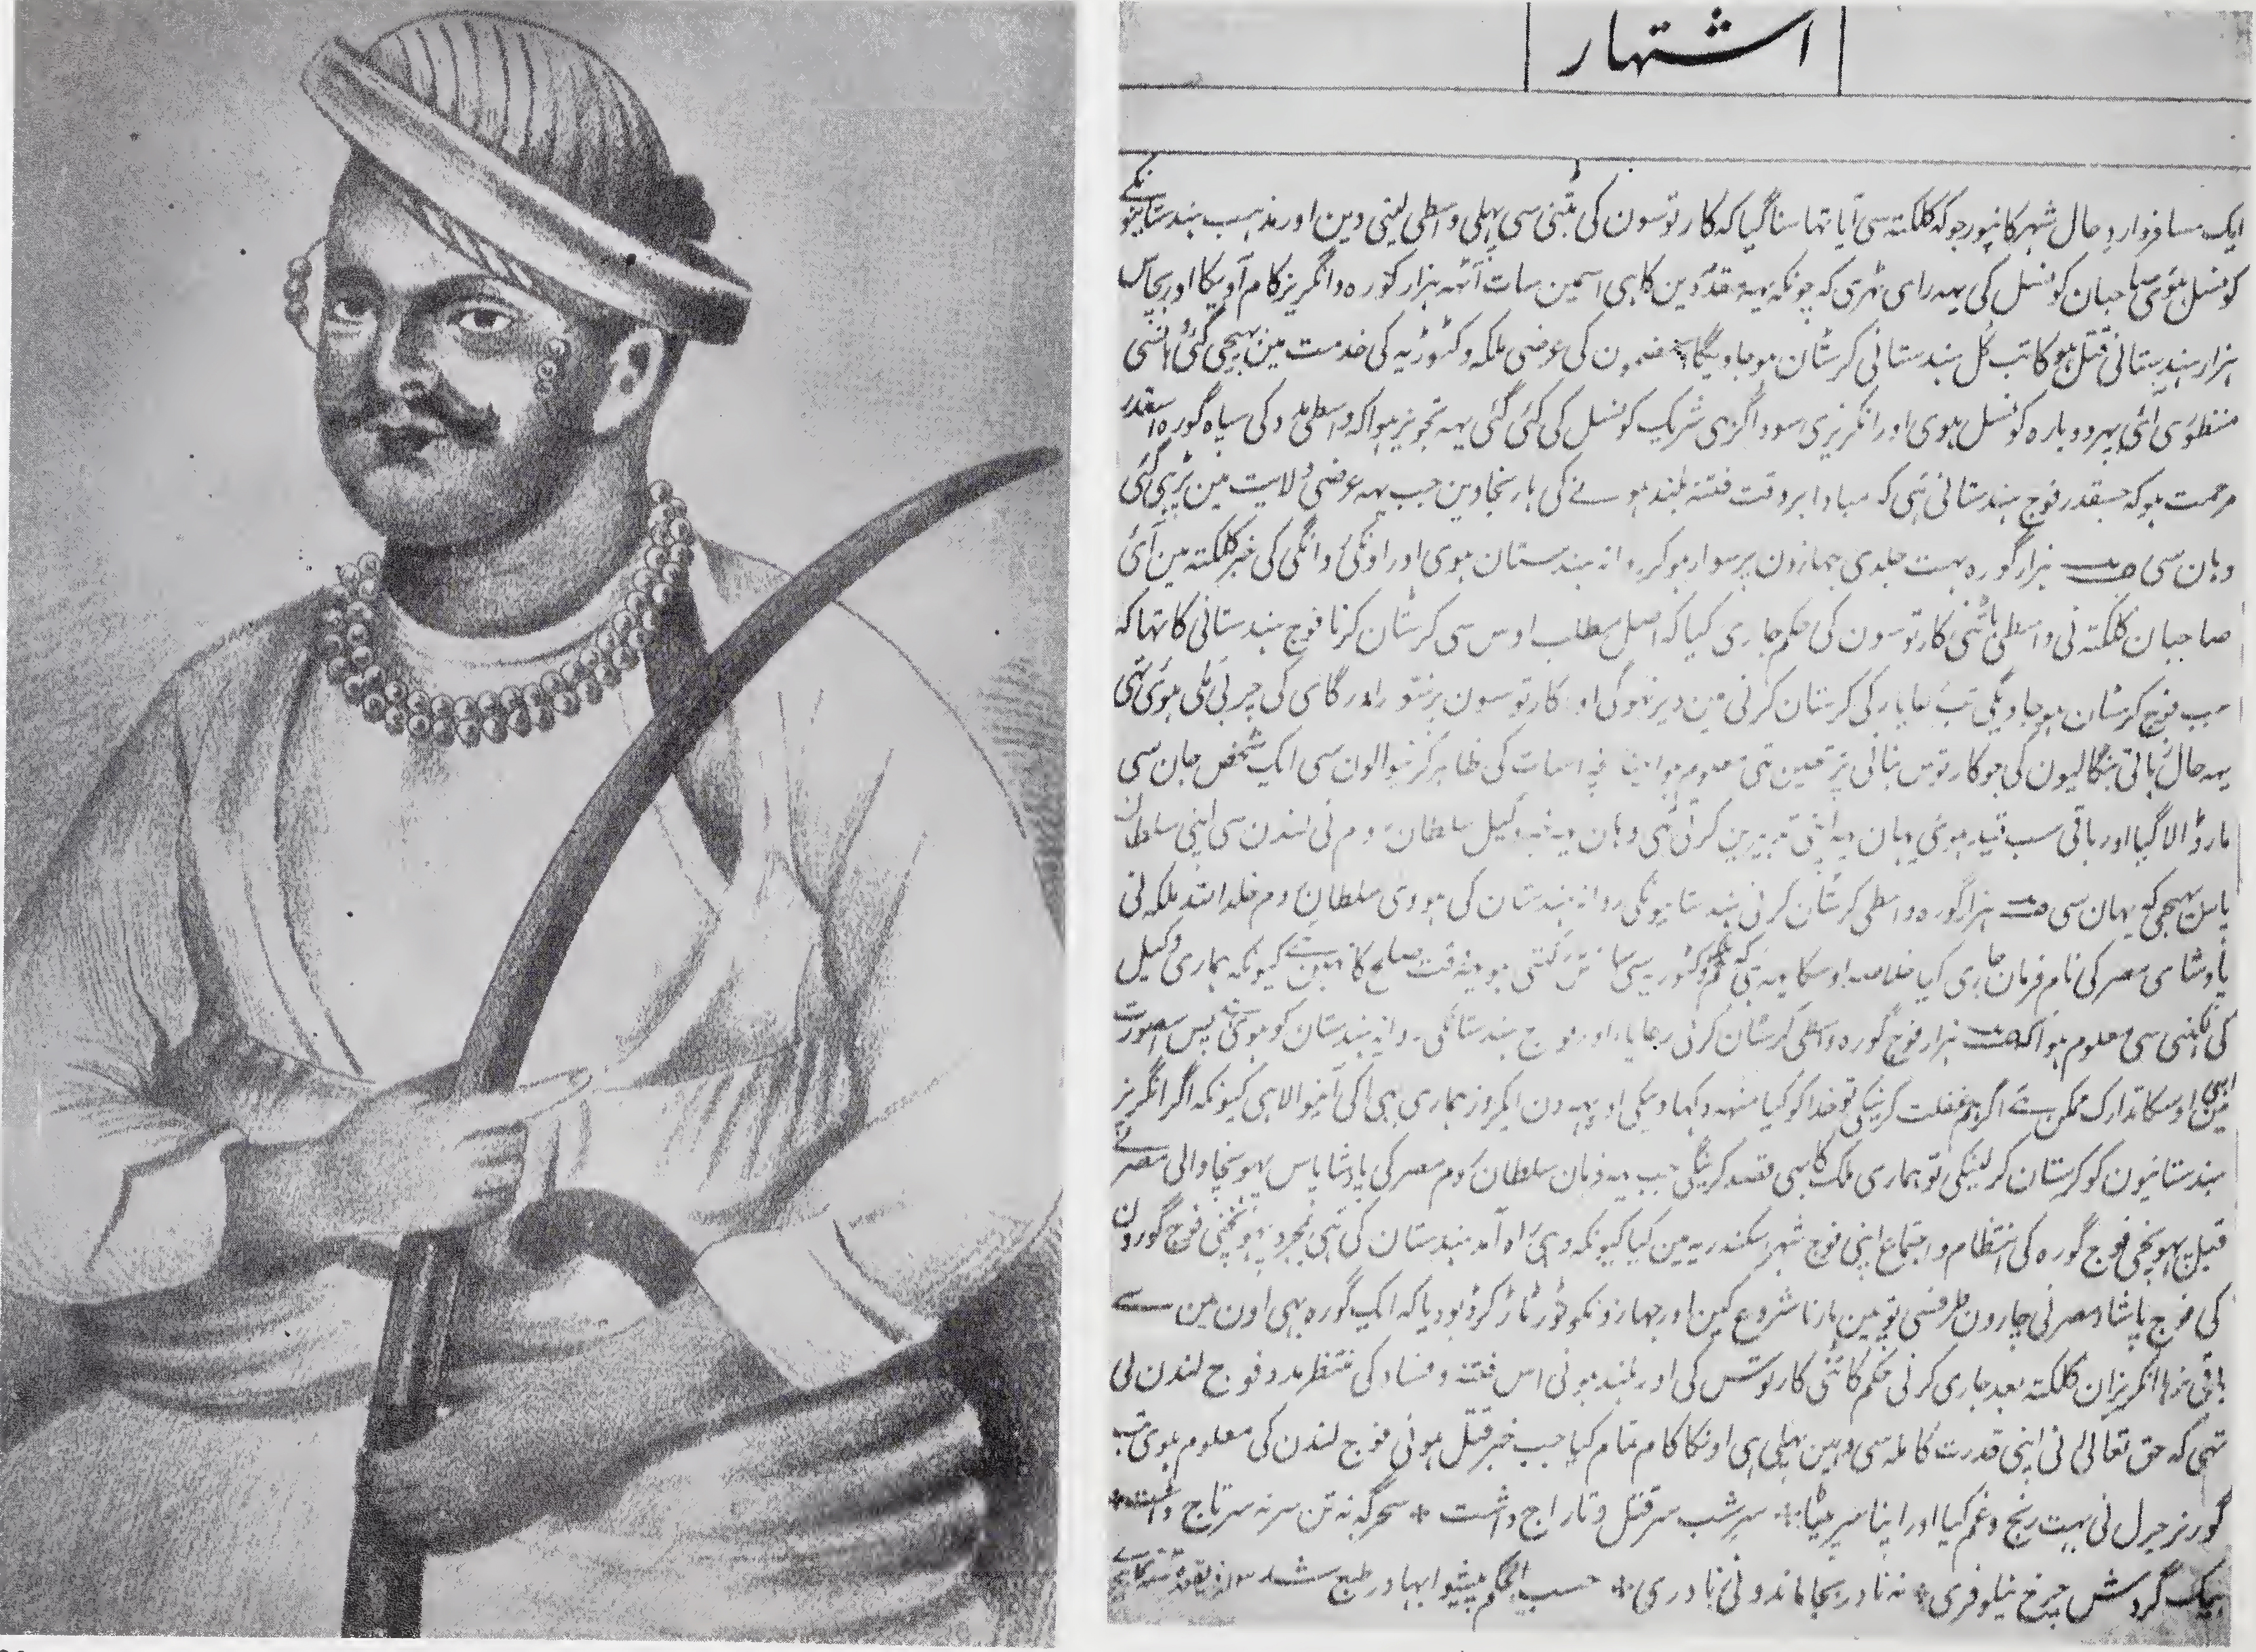 اشتهار
ایک مسافر وارد حال شہر کانپور جو کہ کلکتہ سی آیا تہا سنا گیا کہ کارتوسون کی بٹنی سی پہلی واسطی لینی دین اور مذہب ہندستانیونکے
کونسل ہوئی صاحبان کونسل کی یہہ رای ٹہری کہ چونکہ یہہ مقدمہ دین کا ہی اسمین سات آٹہہ ہزار گوره و انگریز کام آویگا اور پچاس
ہزار ہندستانی قتل ہوگا تب کل ہندستانی کرسٹان ہو جاویگا مضمون کی عرضی ملکہ وکٹوریہ کی خدمت مین بہیجی گئی
منظوری آئی پہر دوباره کونسل ہوی اور انگریزی سوداگر ہی شریک کونسل کی کئی گئی یہہ تجویز ہوا کہ واسطی مدد کی سپاه گوره اسقدر
مرحمت ہو کہ جسقدر فوج ہندستانی ہی کہ مبادا بروقت فتنہ بلند ہونے کی ہار نجاوین جب یہہ عرضی ولایت مین پڑہی گئی
وہان سی ہزار گوره بہت جلدی جہازون پر سوار ہو کر روانہ ہندستان ہوی اور اونکی روانگی کی خبر کلکتہ مین آئی
صاحبان کلکتہ نی واسطی بانٹنی کارتوسون کی حکم جاری کیا کہ اصل مطلب اوس سی کرسٹان کرنا فوج ہندستانی کا تہا کہ
جب فوج کرسٹان ہو جاویگی تب رعایا کی کرسٹان کرنی مین دیر نہوگی اور کارتوسون پر سور اور گای کی چربی ملی ہوئی تہی
یہہ حال زبانی بنگالیون کی جو کارتوس بنانی پر تعین تہی معلوم ہوا اس بات کی ظاہر کرنیوالون سی ایک شخص جان سی
مار ڈالا گیا اور باقی سب قید ہوئی یہان یہہ اپنی تدبیرین کرتی تہی وہان یہہ خبر وکیل سلطان روم نی لندن سی اپنی سلطان
پاس بہیجی کہ یہان سی ہزار گوره واسطی کرسٹان کرنی ہندستانیونکی روانہ ہندستان کی ہوی سلطان روم خلد اللہ ملکہ نی
پادشاه مصر کی نام فرمان جاری کیا خلاصہ اوسکا یہہ ہی کہ تم وکٹوریہ سی سازش رکہتی ہو یہہ وقت صلح کا نہین ہے کیونکہ ہماری وکیل
کی لکہنی سی معلوم ہوا کہ ہزار فوج گوره واسطی کرسٹان کرنی رعایا اور فوج ہندستانکی روانہ ہندستان کو ہوئی ہے پس اسصورت
مین ابہی اوسکا تدارک ممکن ہے اگر ہم غفلت کرینگی تو خدا کو کیا منہہ دکہاوینگی اور یہہ دن ایکروز ہماری ہی آگی آنیوالا ہی کیونکہ اگر انگریز
ہندستانیون کو کرسٹان کر لینگی تو ہماری ملک کا بہی قصد کرینگی جب یہہ فرمان سلطان روم مصر کی پادشاه پاس پہونچا والی مصر نے
قبل پہونچی فوج گوره کی انتظام و اجتماع اپنی فوج شہر اسکندریہ مین کیا کیونکہ وہی راه آمد ہندستان کی ہی بمجرد پہونچنی فوج گورون
کی فوج پاشاه مصر نی چارون طرف سی توپین مارنا شروع کین اور جہازونکو توڑ تاڑ کر ڈبو دیا کہ ایک گوره بہی اون مین سے
باقی نرہا انگریزان کلکتہ بعد جاری کرنی حکم کاٹنی کارتوس کی اور بلند ہونی اس فتنہ و فساد کی منتظر مدد فوج لندن کی
تہی کہ حق تعالی نی اپنی قدرت کاملہ سی وہین پہلی ہی اونکا کام تمام کیا جب خبر قتل ہونی فوج لندن کی معلوم ہوی تب
گورنر جنرل نی بہت رنج و غم کیا اور اپنا سر پیٹا ٭ سر شب سر قتل و تاراج داشت ٭ سحرگہ نہ تن سر نہ سر تاج داشت ٭
بیک گردش چرخ نیلوفری ٭ نہ نادر بجا ماند و نی نادری ٭ حسب الحکم پیشوا بہادر طبع شد